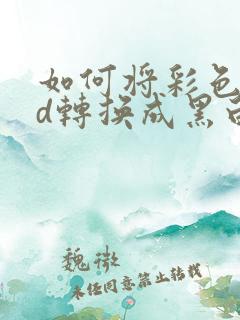 如何将彩色
d轉換成黑白
魏徵
未经同意禁止转载